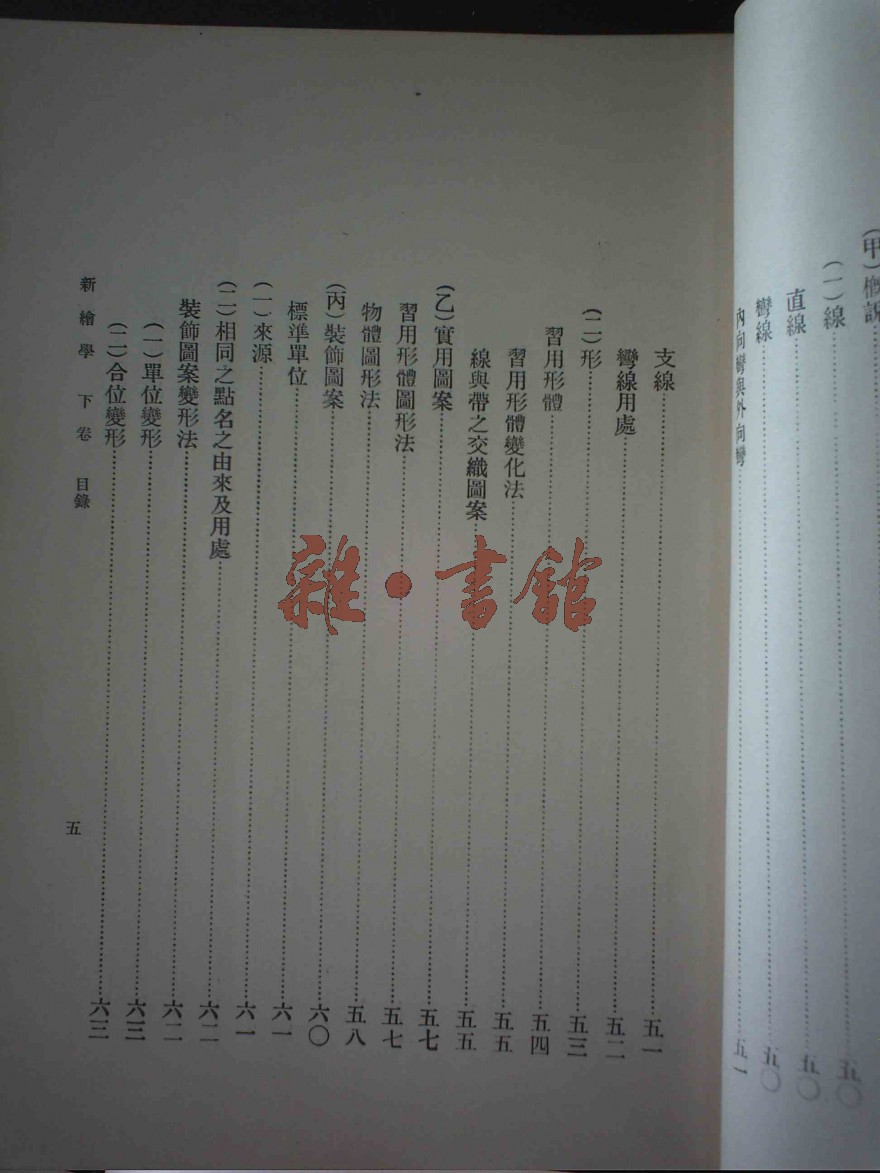 (甲)概說……五〇
(一)線……五〇
直線……五〇
彎線……五〇
內向彎與外向彎……五一
支線……五一
彎線用處……五二
(二)形……五三
習用形體……五四
習用形體變化法……五五
線與帶之交織圖案……五五
(乙)實用圖案……五七
習用形體圖形法……五七
物體圖形法……五八
(丙)裝飾圖案……六〇
標準單位……六一
(一)來源……六一
(二)相同之點名之由來及用處……六二
裝飾圖案變形法……六二
(一)單位變形……六三
(二)合位變形……六三
新繪學 下卷 目錄
五
雜·書館